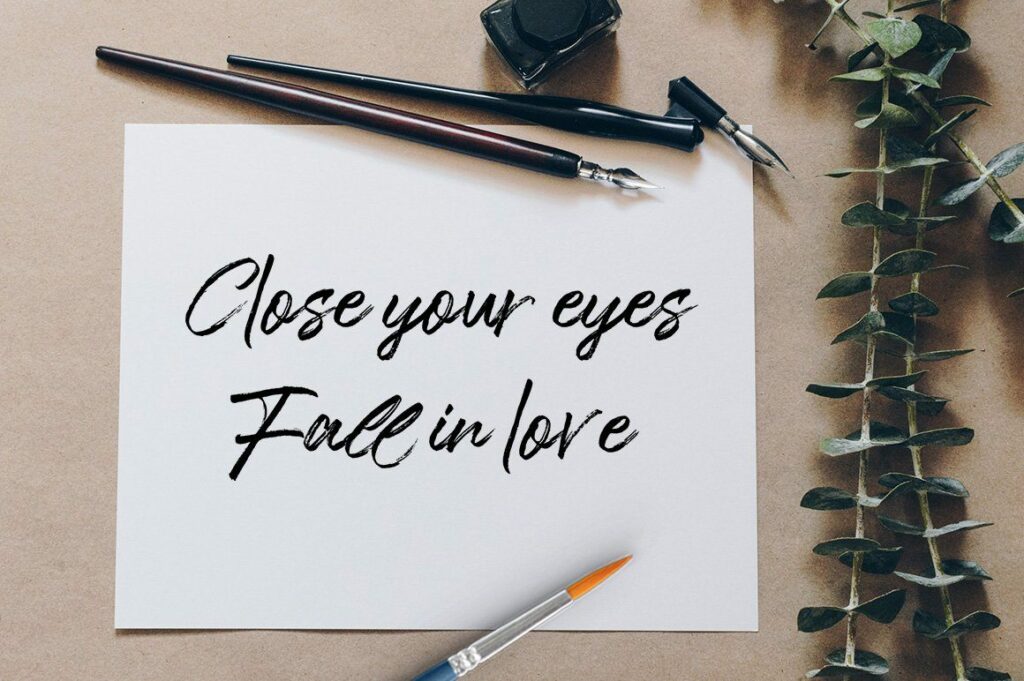 Close your eyes
Fall in love